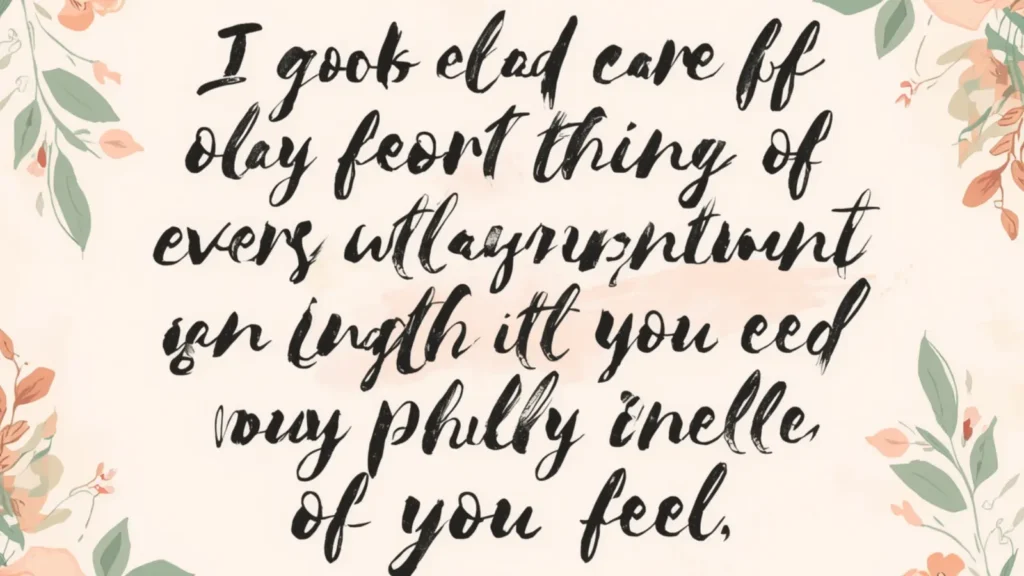 I gooks elad care ff
olay feort thing of
evers
an lingth itl you eed
youy philly inelle,
of you feel,